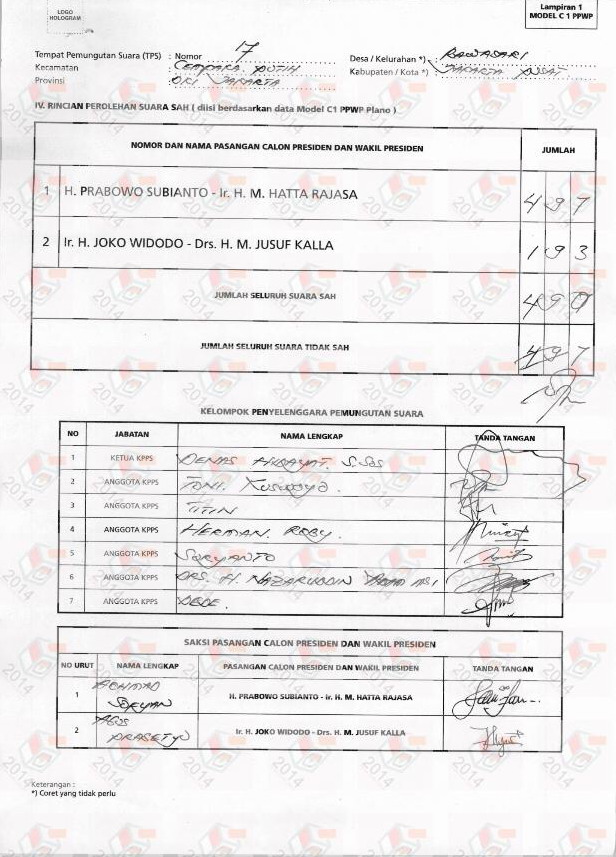 LOGO
HOLOGRAM
Lampiran 1
MODEL C 1 PPWP
Tempat Pemungutan Suara (TPS) : Nomor 17 Desa / Kelurahan *) : RAWASARI
Kecamatan : CEMPAKA PUTIH Kabupaten / Kota *) : JAKARTA PUSAT
Provinsi : DKI JAKARTA
IV. RINCIAN PEROLEHAN SUARA SAH ( diisi berdasarkan data Model C1 PPWP Plano )
NOMOR DAN NAMA PASANGAN CALON PRESIDEN DAN WAKIL PRESIDEN JUMLAH
1 H. PRABOWO SUBIANTO - Ir. H. M. HATTA RAJASA 497
2 Ir. H. JOKO WIDODO - Drs. H. M. JUSUF KALLA 193
JUMLAH SELURUH SUARA SAH 490
JUMLAH SELURUH SUARA TIDAK SAH 497
KELOMPOK PENYELENGGARA PEMUNGUTAN SUARA
NO JABATAN NAMA LENGKAP TANDA TANGAN
1 KETUA KPPS DENAS HIDAYAT. S.Sos
2 ANGGOTA KPPS TONI.
3 ANGGOTA KPPS TITIN
4 ANGGOTA KPPS HERMAN. ROBY.
5 ANGGOTA KPPS SURYANTO
6 ANGGOTA KPPS DRS. H. NAZARUDDIN MSI
7 ANGGOTA KPPS DEDE.
SAKSI PASANGAN CALON PRESIDEN DAN WAKIL PRESIDEN
NO URUT NAMA LENGKAP PASANGAN CALON PRESIDEN DAN WAKIL PRESIDEN TANDA TANGAN
1 ACHMAD SOFYAN H. PRABOWO SUBIANTO - Ir. H. M. HATTA RAJASA
2 AGUS PRASETYO Ir. H. JOKO WIDODO - Drs. H. M. JUSUF KALLA
Keterangan :
*) Coret yang tidak perlu
2014